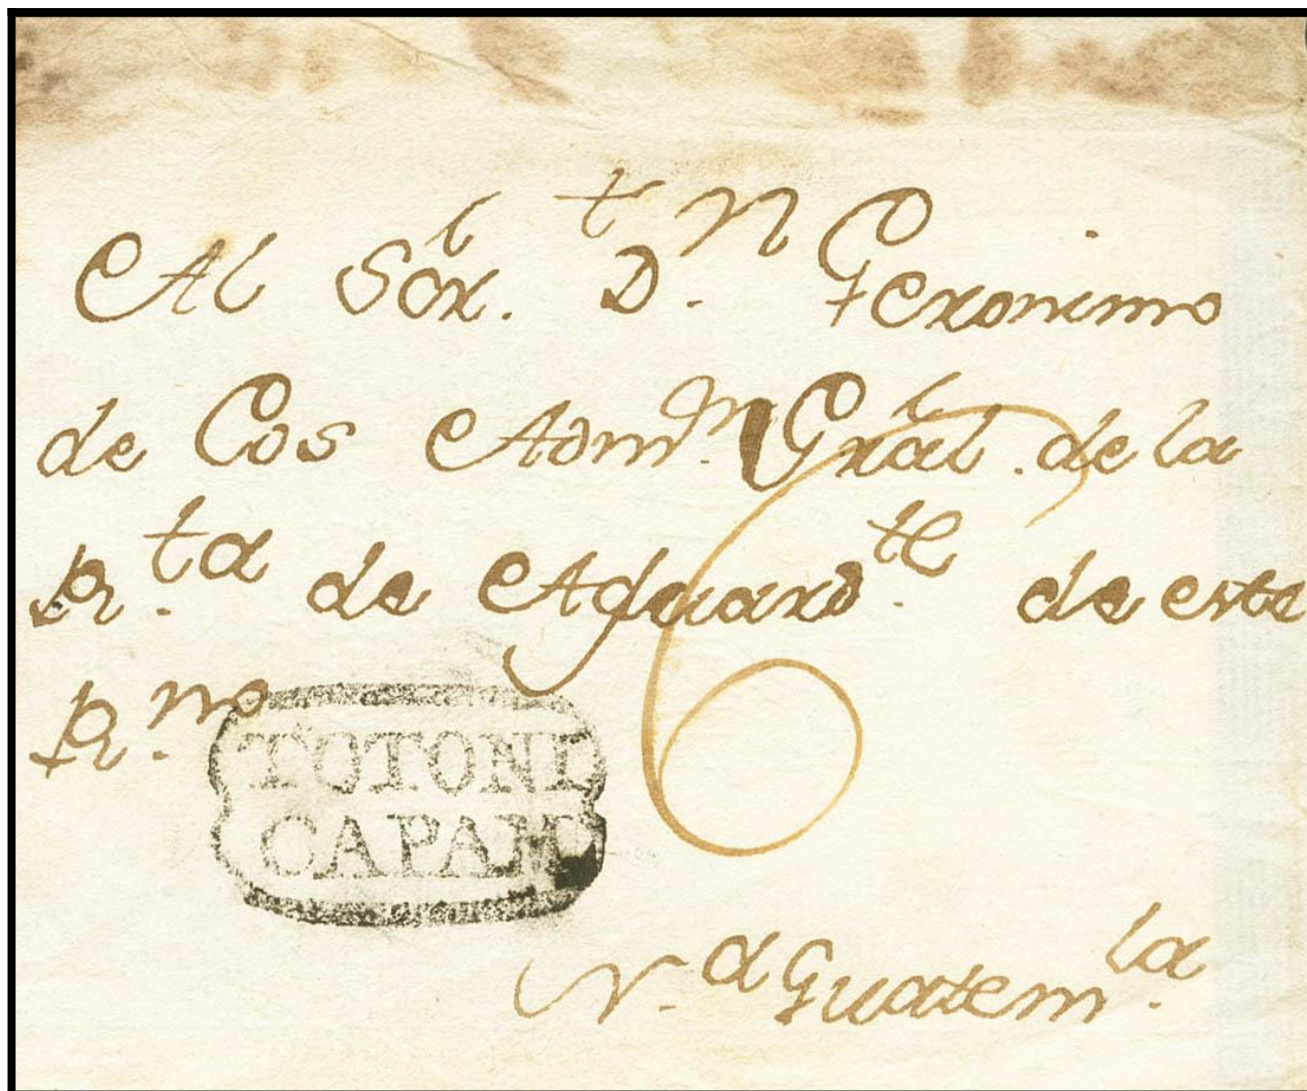 Al Sor. Dn. Geronimo
de Cos Admon. Gral. de la
R.ta de Aguard.te de este
R.no
6
TOTONI
CAPAN
N.a Guatem.la